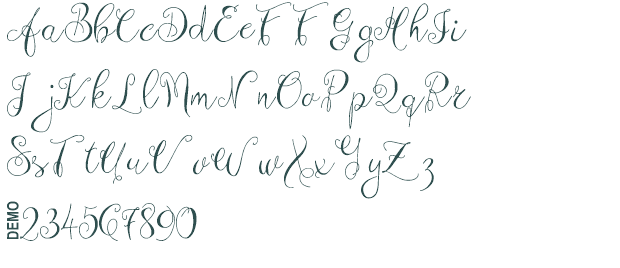 AaBbCcDdEeFFGgHhIi
JjKkLlMmNnOoPpQqRr
SsTtUuVvWwXxYyZz
DEMO234567890